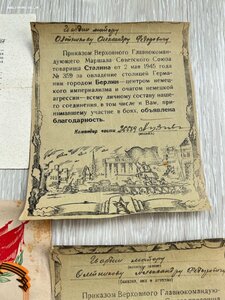 Гвардии майору
Олейникову Александру Фёдоровичу
Приказом Верховного Главнокоман-
дующего Маршала Советского Союза
товарища Сталина от 2 мая 1945 года
№ 359 за овладение столицей Герма-
нии городом Берлин—центром немец-
кого империализма и очагом немецкой
агрессии—всему личному составу наше-
го соединения, в том числе и Вам, при-
нимавшему участие в боях, объявлена
благодарность.
Командир части
Гвардии майору
Олейникову Александру Фёдоровичу
Приказом Верховного Главнокоман-